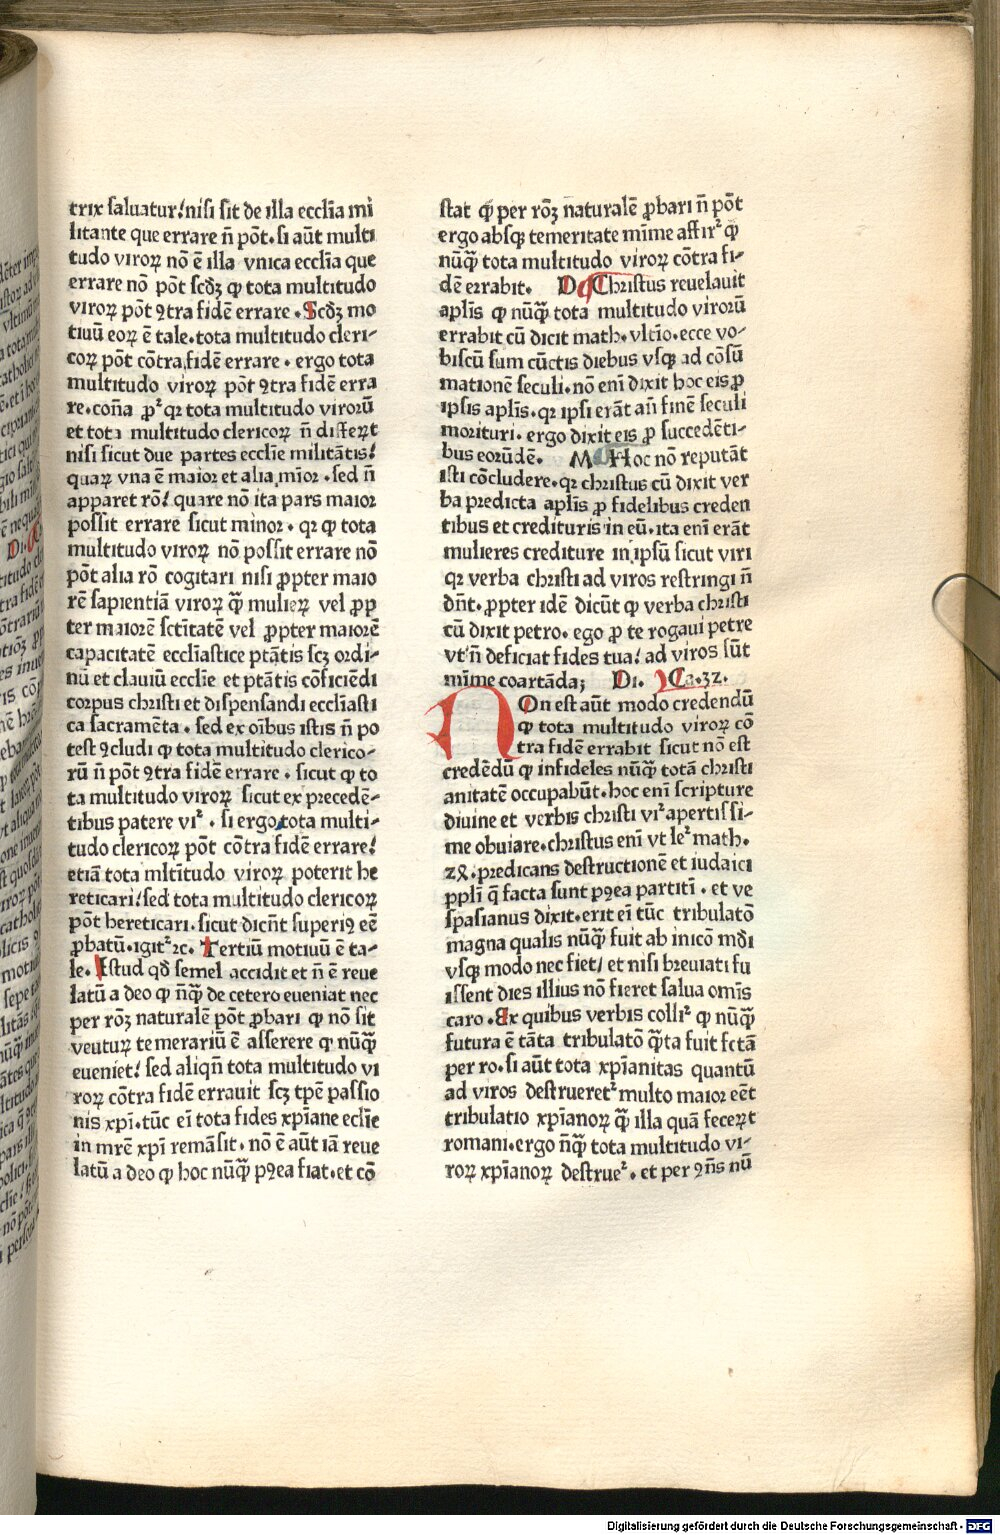 trix saluatur/nisi sit de illa ecclīa mi
litante que errare n̄ pōt. si aūt multi
tudo viroꝝ nō ē illa vnica ecclīa que
errare nō pōt scꝺꝫ ꝙ tota multitudo
viroꝝ pōt ꝯtra fidē errare. Scꝺꝫ mo
tiuū eoꝝ ē tale. tota multitudo cleri-
coꝝ pōt cōtra fidē errare. ergo tota
multitudo viroꝝ pōt ꝯtra fidē erra
re. coña ꝓꝰ qꝛ tota multitudo viroꝝū
et tota multitudo clericoꝝ n̄ differt
nisi sicut due partes ecclīe militātis/
quaꝝ vna ē maior et alia mīor. sed n̄
apparet rō/ quare nō ita pars maior
possit errare sicut minor. qꝛ ꝙ tota
multitudo viroꝝ nō possit errare nō
pōt alia rō cogitari nisi ꝓpter maio
rē sapientiā viroꝝ ꝙ̄ mulieꝝ vel ꝓp
ter maiorē sctītatē vel ꝓpter maiorē
capacitatē ecclīastice ptātis scꝫ ordi-
nū et clauiū ecclīe et ptātis cōficiēdi
corpus christi et dispensandi ecclīasti
ca sacramēta. sed ex oībus istis n̄ po
test ꝯcludi ꝙ tota multitudo clerico-
rū n̄ pōt ꝯtra fidē errare. sicut ꝙ to
ta multitudo viroꝝ sicut ex precedē-
tibus patere vīꝛ. si ergo tota multi-
tudo clericoꝝ pōt cōtra fidē errare/
etiā tota mltītudo viroꝝ poterit he
reticari/ sed tota multitudo clericoꝝ
pōt hereticari. sicut dicn̄t superiꝰ eē
ꝓbatū. igitꝛ ꝛc. Tertiū motiuū ē ta-
le. Istud qꝺ semel accidit et n̄ ē reue
latū a deo ꝙ n̄ꝙ̄ de cetero eueniat nec
per rōꝫ naturalē pōt ꝓbari ꝙ nō sit
ventuꝝ temerariū ē asserere ꝙ nūꝙ̄
eueniet/ sed aliqn̄ tota multitudo vi
roꝝ cōtra fidē errauit scꝫ tpē passio
nis xpī. tūc eī tota fides xpīane eclīe
in mrē xpī remāsit. nō ē aūt iā reue
latū a deo ꝙ hoc nūꝙ̄ pꝰea fiat. et cō
stat ꝙ per rōꝫ naturalē ꝓbari n̄ pōt
ergo absqꝫ temeritate mīme affirꝛ ꝙ
nūꝙ̄ tota multitudo viroꝝ cōtra fi-
dē errabit. D Christus reuelauit
aplīs ꝙ nūꝙ̄ tota multitudo viroꝝū
errabit cū dicit math. vltīo. ecce vo-
biscū sum cūctis diebus vsqꝫ ad cōsū
mationē seculi. nō enī dixit hoc eis ꝓ
ipsis aplīs. qꝛ ipsi erāt añ finē seculi
morituri. ergo dixit eis ꝓ succedēti-
bus eorūdē. M Hoc nō reputāt
isti cōcludere. qꝛ christus cū dixit ver
ba predicta aplīs ꝓ fidelibus creden
tibus et credituris in eū. ita enī erāt
mulieres crediture in ipsū sicut viri
qꝛ verba christi ad viros restringi n̄
dn̄t. ꝓpter idē dicūt ꝙ verba christi
cū dixit petro. ego ꝓ te rogaui petre
vt n̄ deficiat fides tua/ ad viros sūt
mīme coartāda; Di. Ca. 32.
NOn est aūt modo credendū
ꝙ tota multitudo viroꝝ cō
tra fidē errabit sicut nō est
credēdū ꝙ infideles nūꝙ̄ totā christi
anitatē occupabūt. hoc enī scripture
diuine et verbis christi vīꝛ apertissi-
me obuiare. christus enī vt leꝛ math.
24. predicans destructionē et iudaici
ppl̄i q̄ facta sunt pꝰea partitī. et ve
spasianus dixit. erit eī tūc tribulatō
magna qualis nūꝙ̄ fuit ab inicō mūdi
vsqꝫ modo nec fiet/ et nisi breuiati fu
issent dies illius nō fieret salua omīs
caro. Ex quibus verbis colliꝛ ꝙ nūꝙ̄
futura ē tāta tribulatō ꝙ̄ta fuit fctā
per ro. si aūt tota xpīanitas quantū
ad viros destrueretꝛ multo maior eēt
tribulatio xpīanoꝝ ꝙ̄ illa quā feceꝝt
romani. ergo n̄ꝙ̄ tota multitudo vi-
roꝝ xpīanoꝝ destrueꝛ. et per ꝯn̄s nū
Digitalisierung gefördert durch die Deutsche Forschungsgemeinschaft - DFG